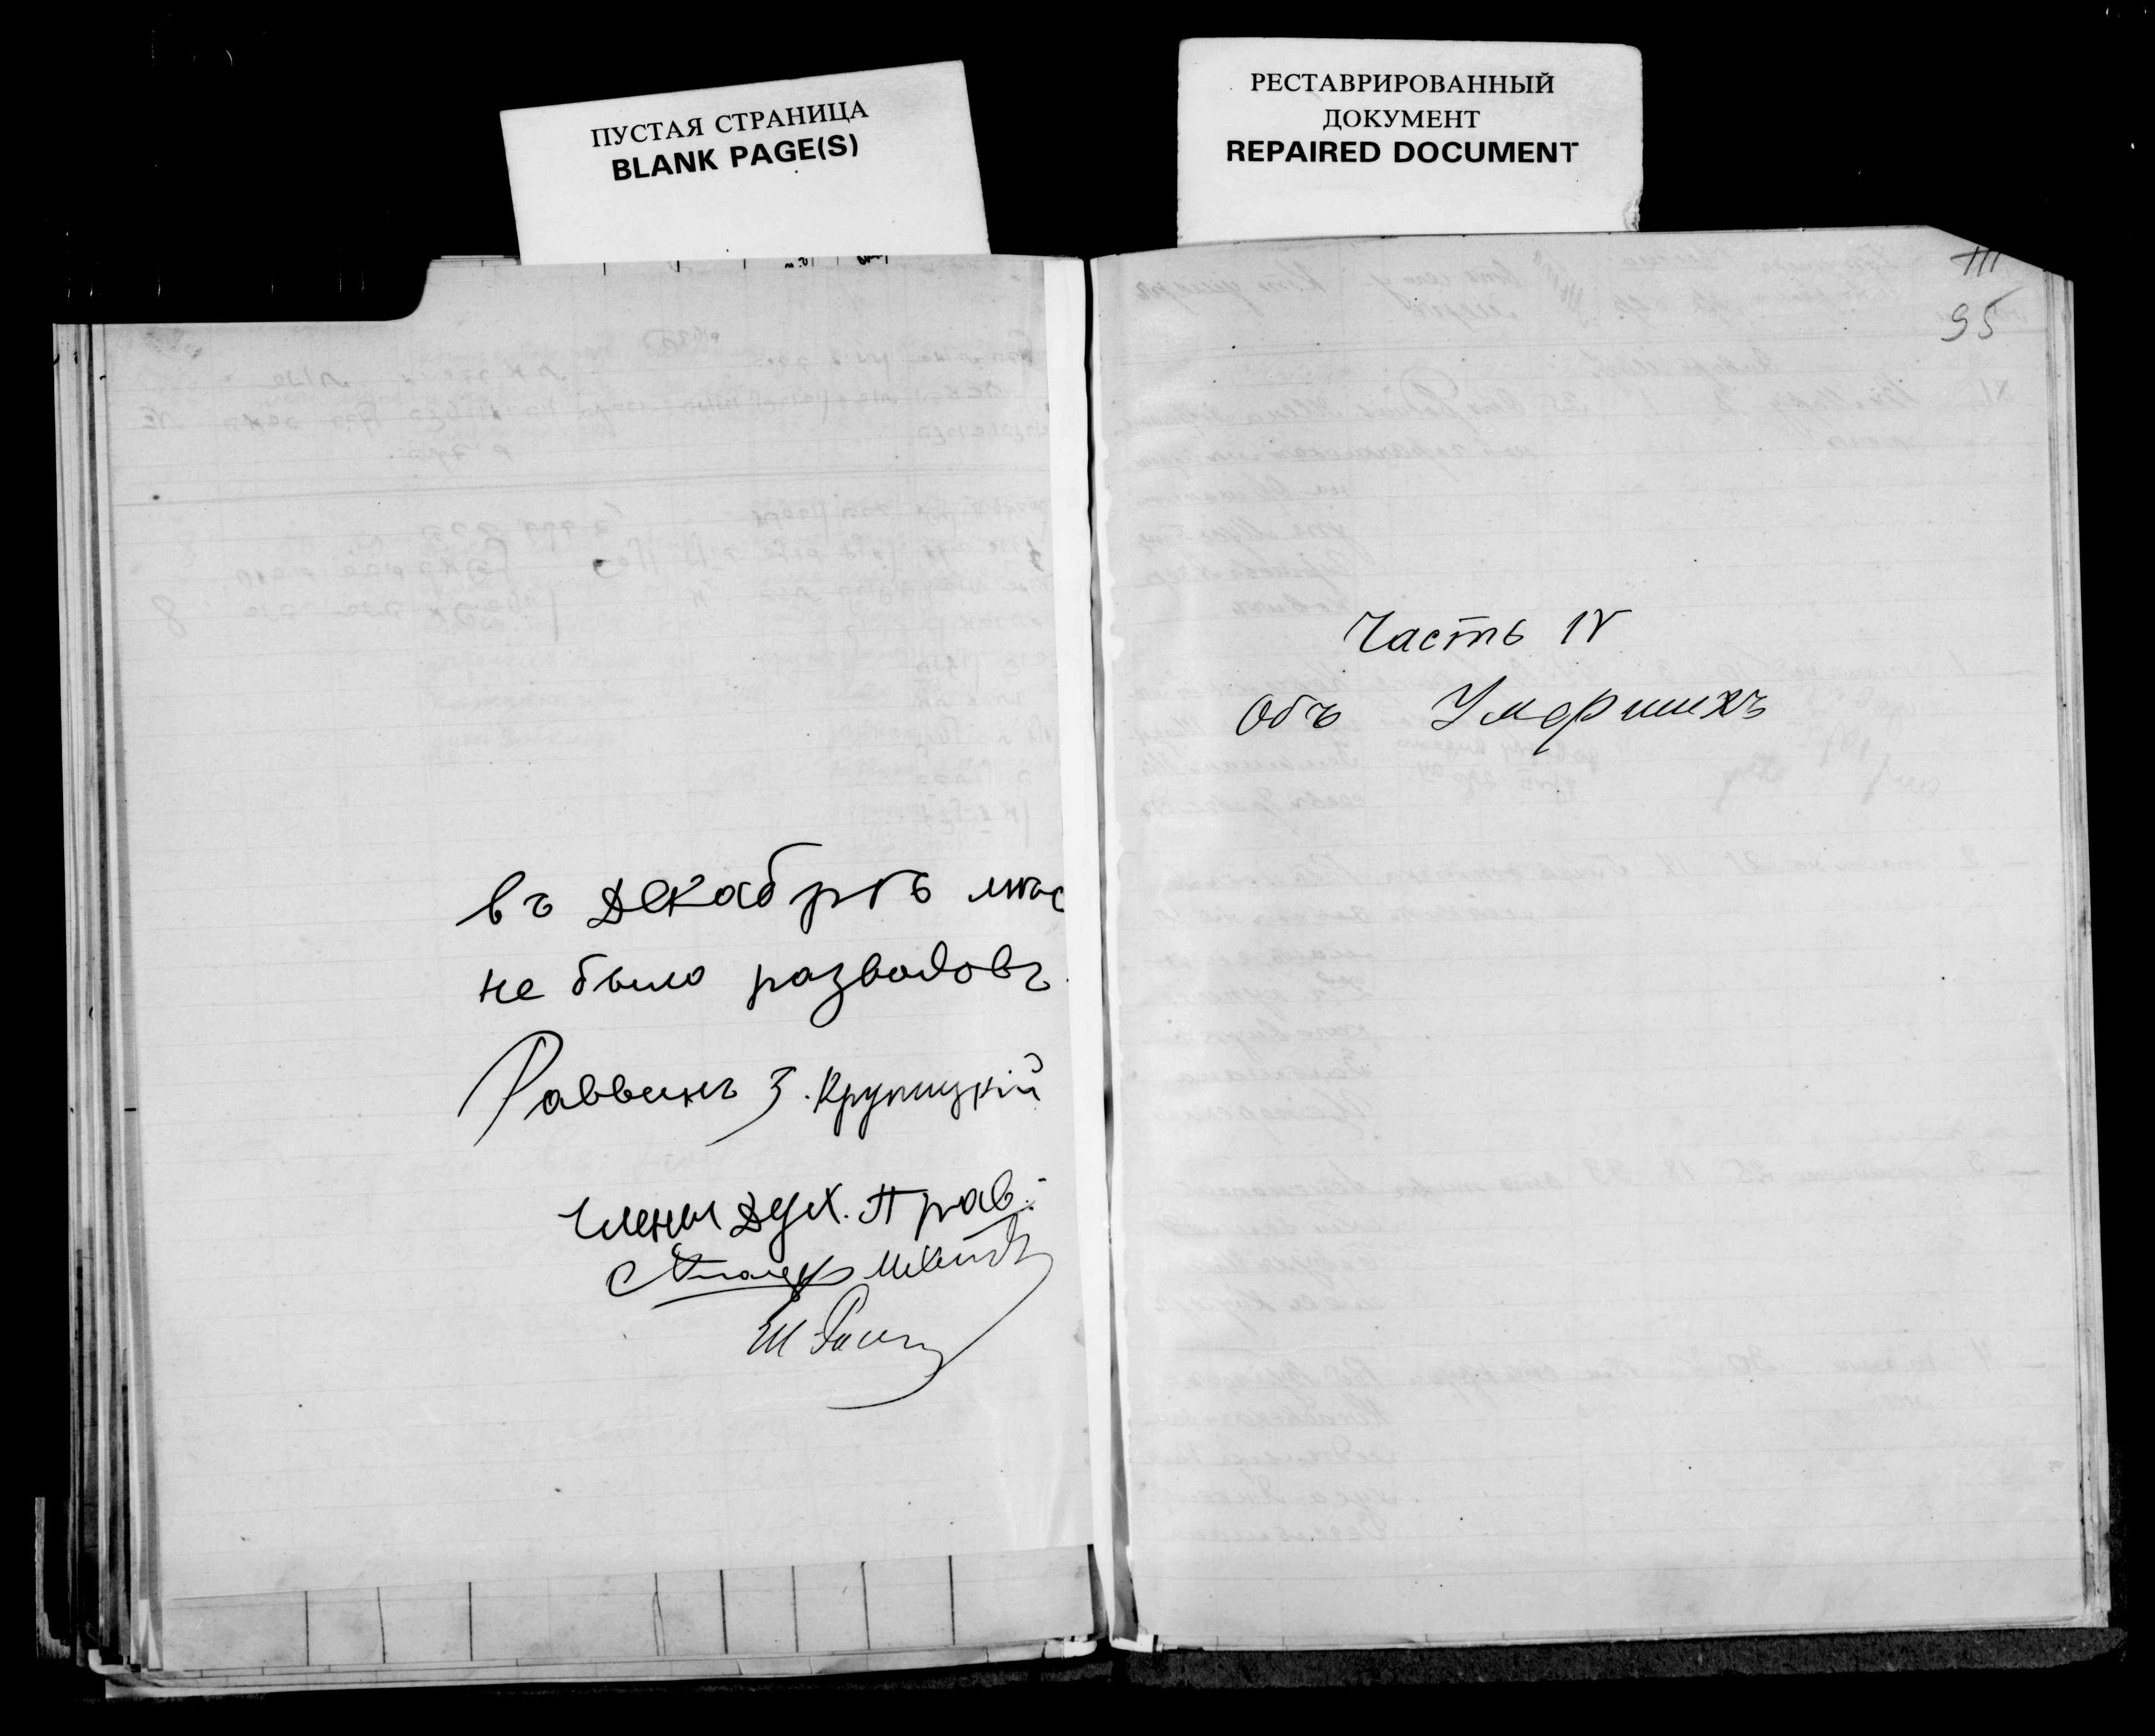 ПУСТАЯ СТРАНИЦА
BLANK PAGE(S)
въ Декабрѣ мѣс
не было разводовъ.
Раввинъ З. Крупицкій
Члены Дух. Прав.
РЕСТАВРИРОВАННЫЙ
ДОКУМЕНТ
REPAIRED DOCUMENT
III
95
Часть IV
Объ Умершихъ